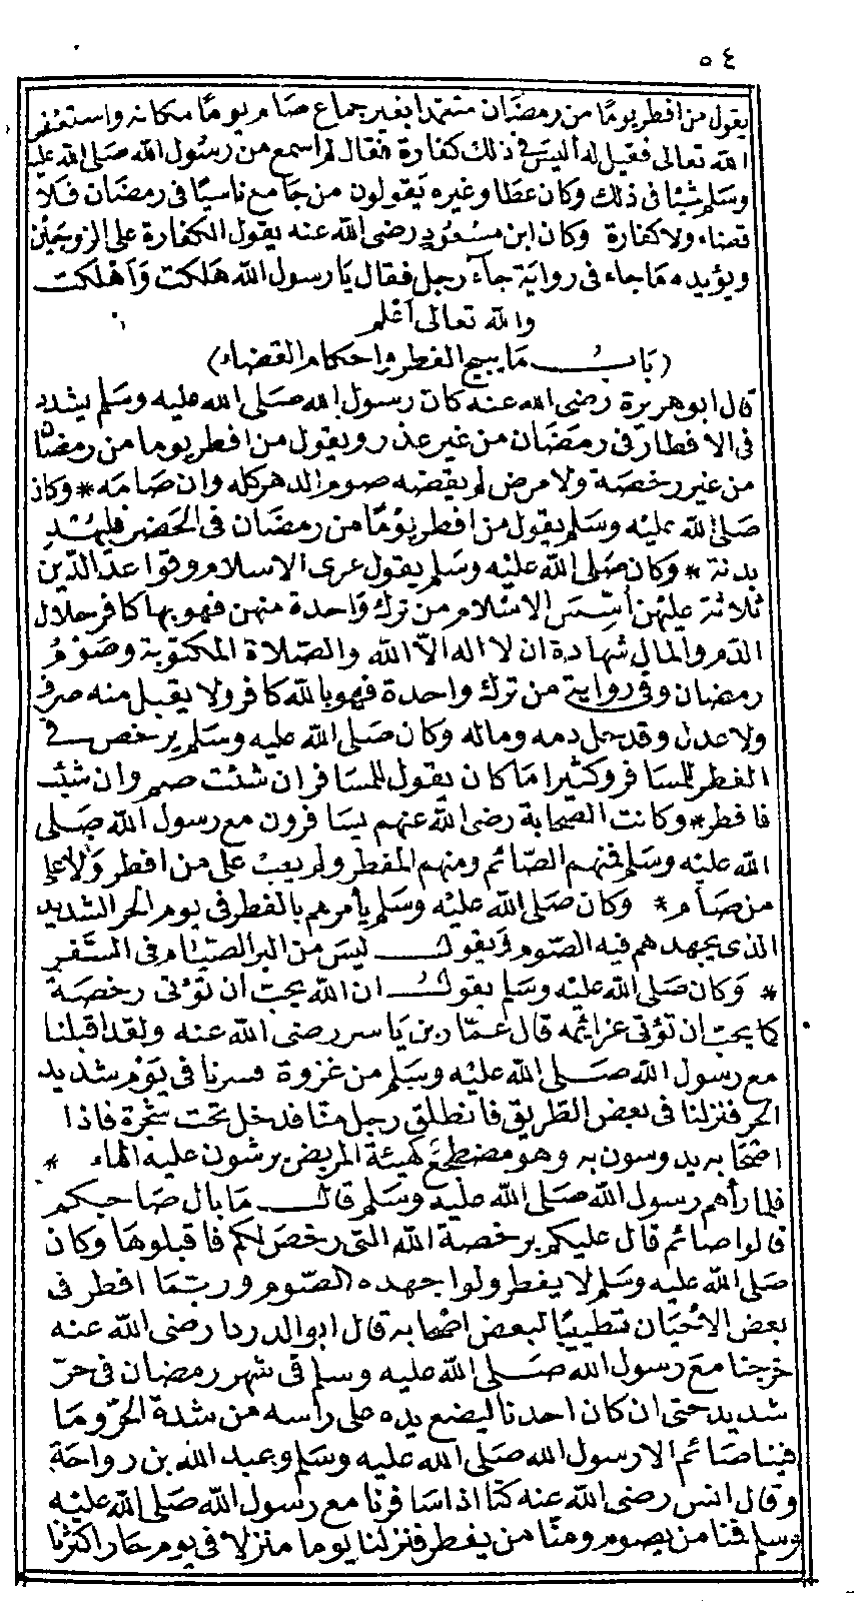 ٥٤
يقول من افطر يومًا من رمضان متعمدا بغير جماع صام يومًا مكانه واستغفر
الله تعالى فقيل له أليس في ذلك كفارة فقال لم اسمع من رسول الله صلى الله عليه
وسلم شيئا في ذلك وكان عطا وغيره يقولون من جامع ناسيًا في رمضان فلا
قضاء ولا كفارة وكان ابن مسعود رضى الله عنه يقول الكفارة على الزوجين
ويؤيده ما جاء في رواية جآء رجل فقال يا رسول الله هلكت وأهلكت
والله تعالى أعلم
(باب ما يبيح الفطر واحكام القضاء)
قال ابو هريرة رضى الله عنه كان رسول الله صلى الله عليه وسلم يشدد
في الافطار في رمضان من غير عذر ويقول من افطر يوما من رمضان
من غير رخصة ولا مرض لم يقضه صوم الدهر كله وان صامه * وكان
صلى الله عليه وسلم يقول من افطر يومًا من رمضان في الحضر فليهد
بدنة * وكان صلى الله عليه وسلم يقول عرى الاسلام وقواعد الدين
ثلاثة عليهن أسس الاسلام من ترك واحدة منهن فهو بها كافر حلال
الدم والمال شهادة ان لا اله الا الله والصلاة المكتوبة وصوم
رمضان وفي رواية من ترك واحدة فهو بالله كافر ولا يقبل منه صرف
ولا عدل وقد حل دمه وماله وكان صلى الله عليه وسلم يرخص في
الفطر للمسافر وكثيرا ما كان يقول للمسافر ان شئت صم وان شئت
فافطر * وكانت الصحابة رضى الله عنهم يسافرون مع رسول الله صلى
الله عليه وسلم فمنهم الصائم ومنهم المفطر ولم يعب على من افطر ولا على
من صام * وكان صلى الله عليه وسلم يأمرهم بالفطر في يوم الحر الشديد
الذى يجهدهم فيه الصوم ويقول ليس من البر الصيام في السفر
* وكان صلى الله عليه وسلم يقول ان الله يحب ان تؤتى رخصه
كما يحب ان تؤتى عزائمه قال عمار بن ياسر رضى الله عنه ولقد اقبلنا
مع رسول الله صلى الله عليه وسلم من غزوة فسرنا في يوم شديد
الحر فنزلنا في بعض الطريق فانطلق رجل منا فدخل تحت شجرة فاذا
اصحابه يدوسون به وهو مضطجع كهيئة المريض يرشون عليه الماء *
فلما رأهم رسول الله صلى الله عليه وسلم قال ما بال صاحبكم
قالوا صائم قال عليكم برخصة الله التى رخص لكم فاقبلوها وكان
صلى الله عليه وسلم لا يفطر ولو اجهده الصوم وربما افطر في
بعض الاحيان تطييبًا لبعض اصحابه قال ابو الدردا رضى الله عنه
خرجنا مع رسول الله صلى الله عليه وسلم في شهر رمضان في حر
شديد حتى ان كان احدنا ليضع يده على رأسه من شدة الحر وما
فينا صائم الا رسول الله صلى الله عليه وسلم وعبد الله بن رواحة
وقال انس رضى الله عنه كنا اذا سافرنا مع رسول الله صلى الله عليه
وسلم فمنا من يصوم ومنا من يفطر فنزلنا يوما منزلا في يوم حار اكثرنا